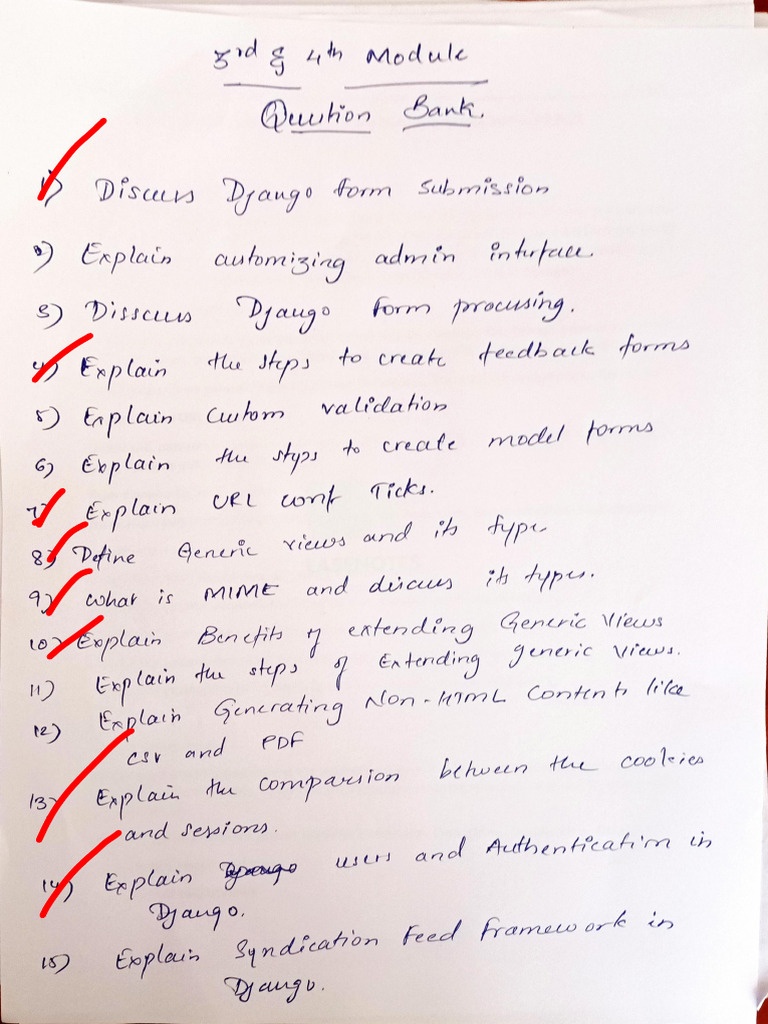 3rd & 4th Module
Question Bank.
1) Discuss Django form submission
2) Explain automizing admin interface.
3) Disscuss Django form processing.
4) Explain the steps to create feedback forms
5) Explain Custom validation
6) Explain the styps to create model forms
7) Explain URL conf Ticks.
8) Define Generic views and its type
9) what is MIME and discuss its types.
10) Explain Benefits of extending Generic Views
11) Explain the steps of Extending generic views.
12) Explain Generating Non-HTML Contents like
csv and PDF
13) Explain the comparsion between the cookies
and sessions.
14) Explain Django users and Authentication in
Django.
15) Explain Syndication Feed Framework in
Django.